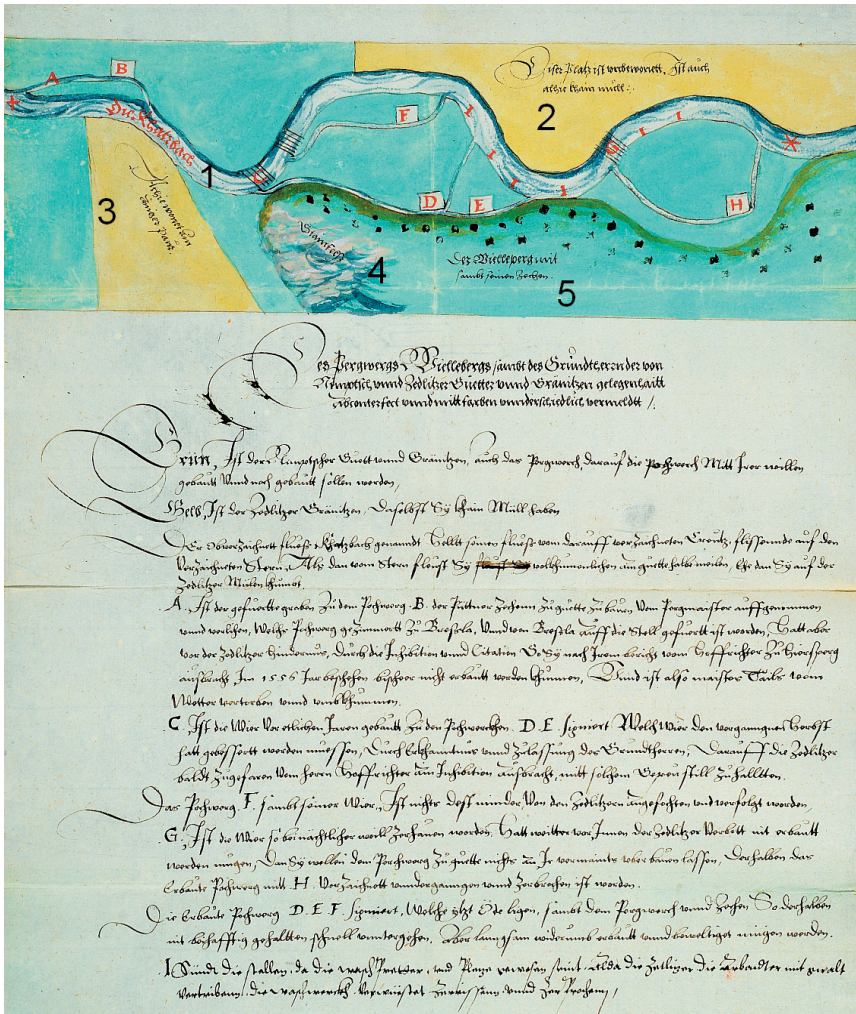 A
B
Die Khatzbach
1
F
C
D
E
G
H
I
I
I
I
I
I
I
2
3
4
5
Diser Platz ist unbeworiett, Ist auch
alhie khain müll.
Der Wiellepergmit
sambt seinen Zechen.
Des Pergwergs Wiellebergs sambt des Grundtherrnder von
Nimptsch unnd Zedlitzer Guetter unnd Gränitzen gelegenhaitt
Abconterfect unnd mitt farben underschiedlich vermeldtt
Grün, Ist der Nimptscher Guett unnd Gränitzen, auch das Pergwerch, darauf die pochwerch Mitt Irer willen
gebautt Unnd noch gebautt sollen werden,
Gelb, Ist der Zedlitzer Gränitzen, Daselbst Sy khain Müll haben
Der Obverzaichnett flues Khatzbach genanndt Helltt seinen flues vom darauff verzaichneten Creutz, flissennde auf den
Verzaichneten Stern, Als dan vom Stern fleust Sy volkhumenlichen ain guette halbe meilen, Ehe dan Sy auf der
Zedlitzer Mülen khumbt.
A. Ist der gefuertte graben Zu dem Pochwerg. B. der Zechenn Zu guette Zu bauen Vom Pergmaister auffgenommen
unnd verlihen, Welchs Pochwerg gezimmertt Zu Bresla, Unnd von Bresla auff die Stell gefuertt ist worden, Hatt aber
vor der Zedlitzer hindernus, Durch die Inhibition unnd Citation So Sy nach Irem bericht vom Hoffrichter Zu
ausbracht, Im 1556 Jar beschehen bisheer nicht erbautt werden khunnen, Unnd ist also maister Tails vom
Wetter verterben unnd umbkhummen.
C. Ist die Wier Vor etlichen Jaren gebautt Zu den Pochwerchen. D. E. signiert Welch Wier den vergangnen Herbst
hatt gebessertt werden muessen, Durch Erkhanntnus unnd Zulassung der Grundtherren, Darauff die Zedlitzer
baldt Zugefaren Vom herrn Hoffrichter ain Inhibition ausbracht, mitt solhem still Zuhallten.
Das Pochwerg. F. sambt seiner Wier, Ist nichts dest minder Von den Zedlitzern angefochten und verfolgt worden
G. Ist die Wier so bei nachtlicher weill Zerhauen worden, Hatt weitter vor Innen der Zedlitzer Verbott nit erbautt
werden mugen, Dan Sy wellen dem Pochwerg Zu guette nichts uber bauen lassen, Derhalben das
Erbaute Pochwerg mitt. H. Verzaichnett unndergangen unnd Zerbrochen ist worden.
Die Erbaute Pochwerg D. E. F. signiert, Welche itzt Öde ligen, sambt dem Pergwerch unnd Zechen So derhalben
nit gehallten schnell unntergehen, Aber langsam widerumb erbautt unnd bewelttiget mügen werden.
I Sindt die stellen, da die wasch und Plane gewesen seint, Alda die Zetlizer die Arbaydter mit gwalt
Vertriben, die waschwerckh Verwüestet Zerrissenn unnd Zer Prochenn